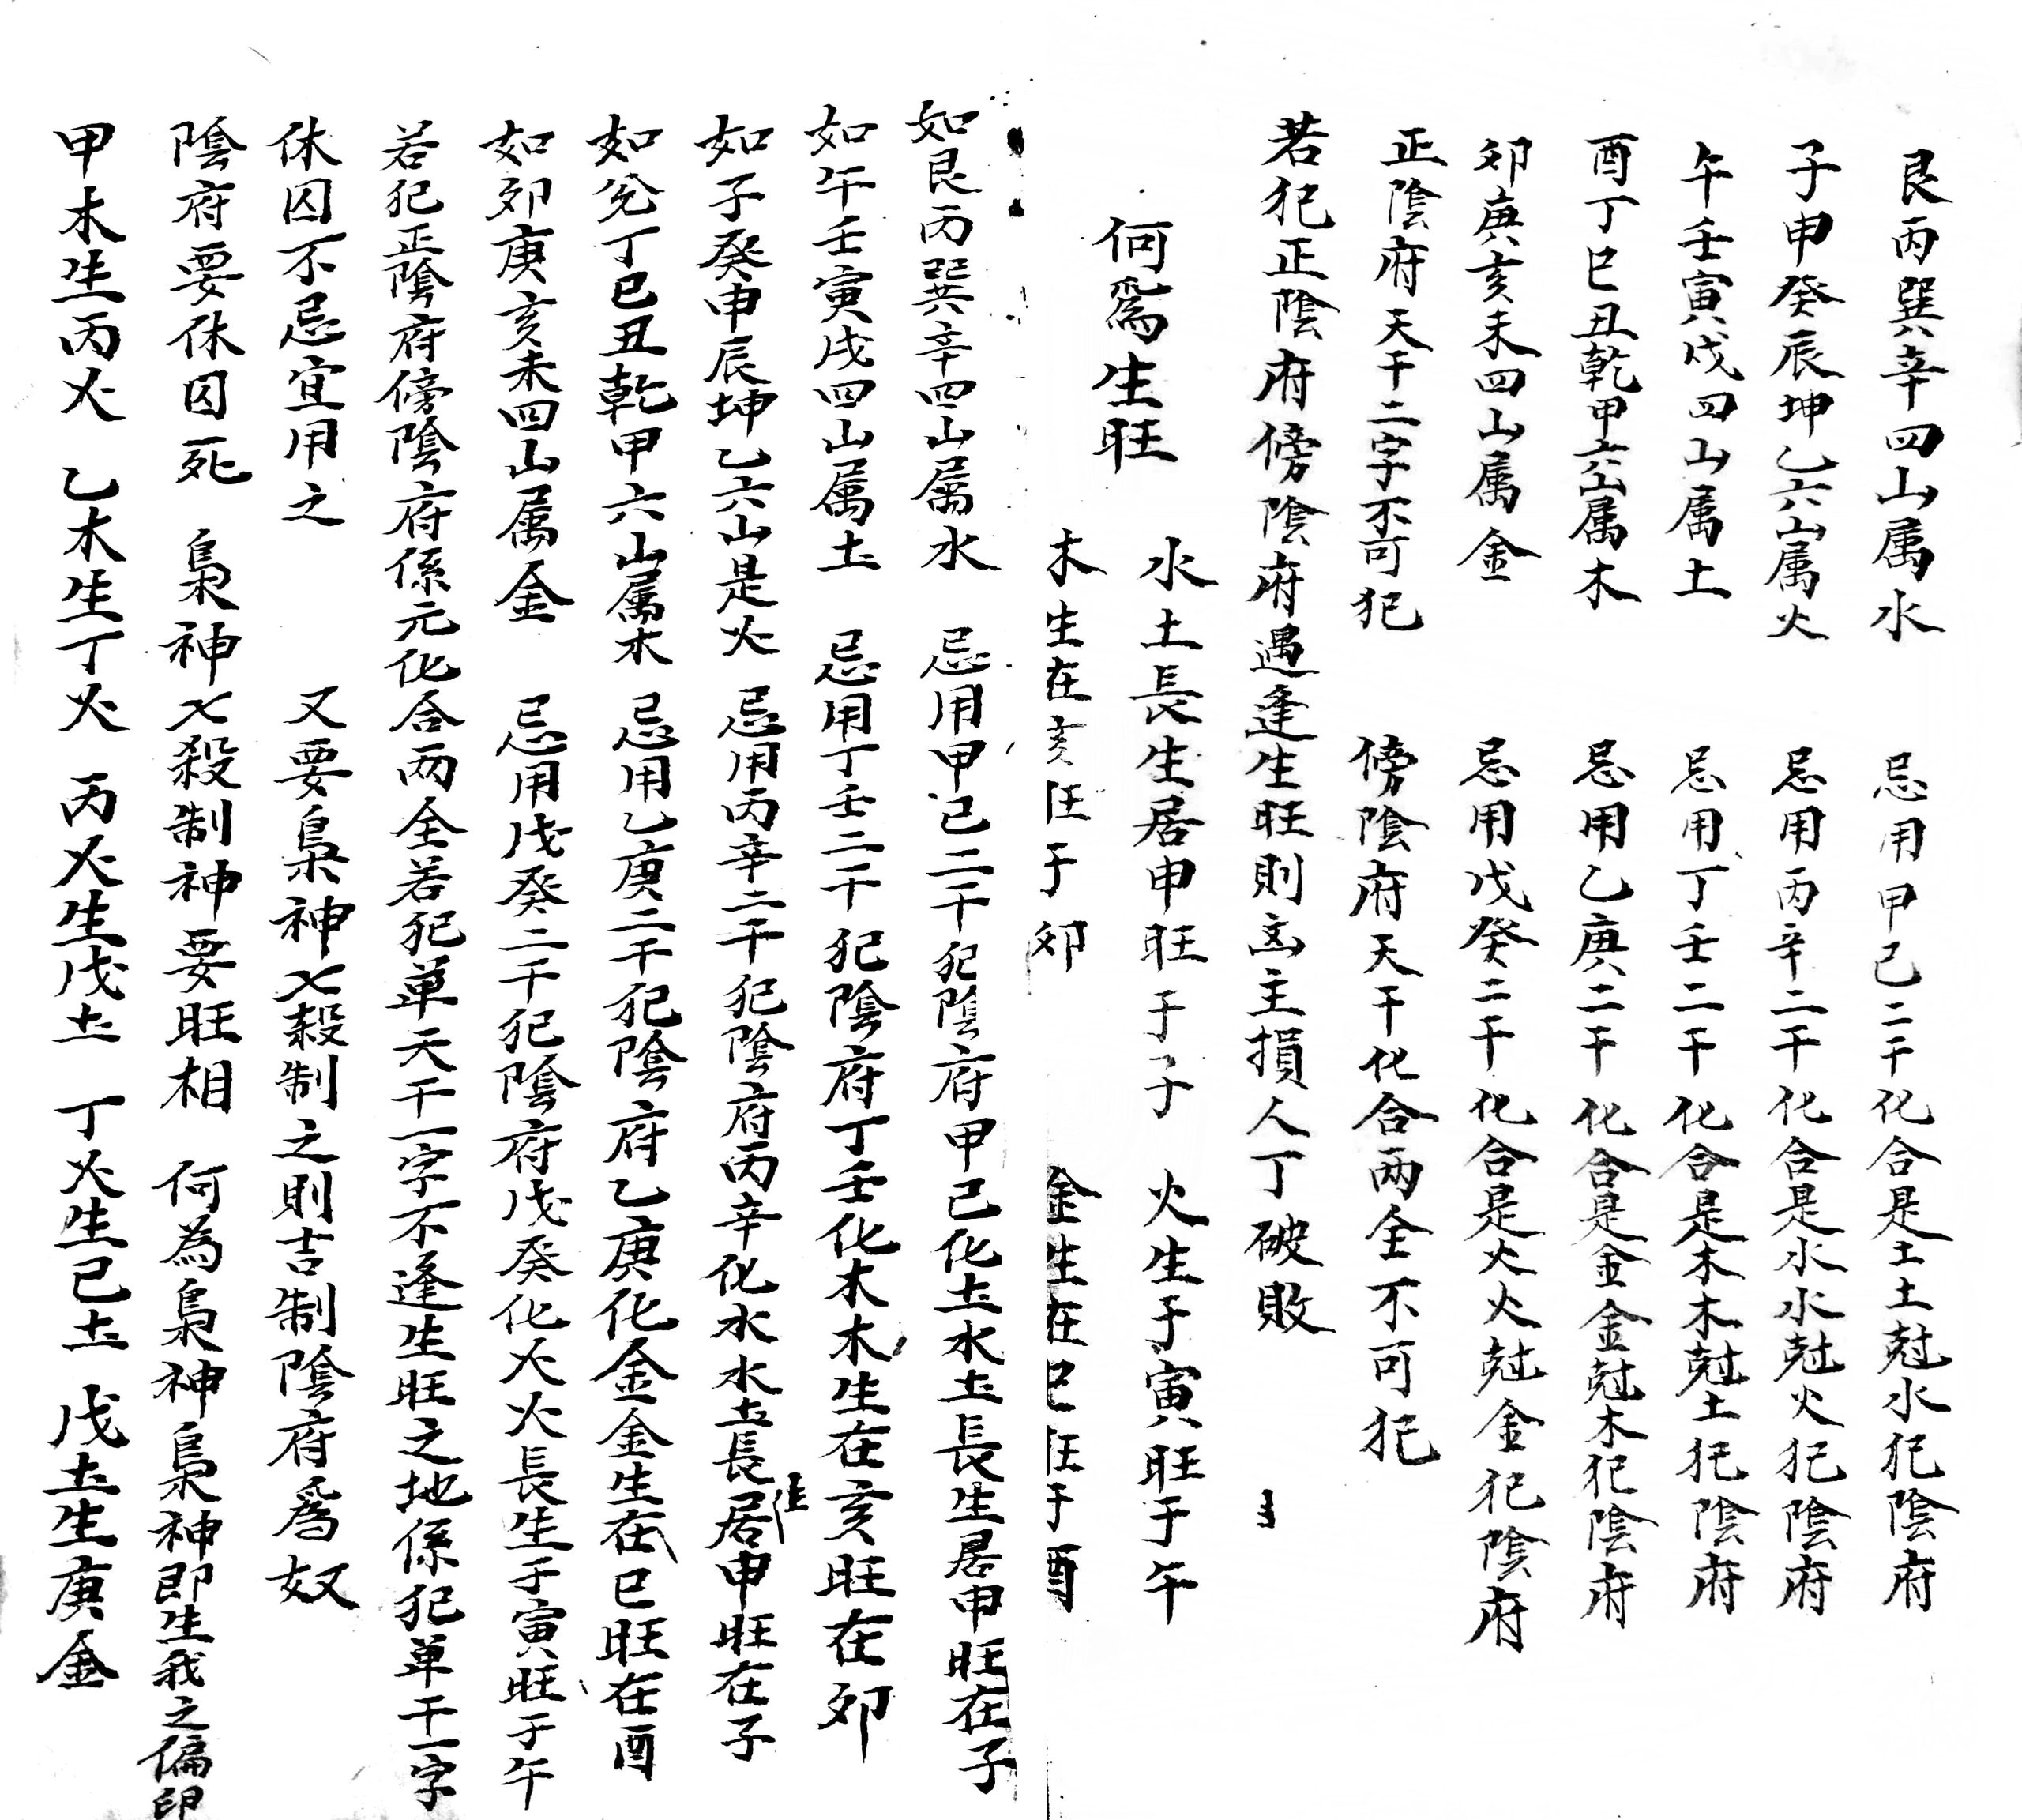 艮丙巽辛四山属水 忌用甲己二干化合是土土尅水犯陰府
子申癸辰坤乙六山属火 忌用丙辛二干化合是水水尅火犯陰府
午壬寅戌四山属土 忌用丁壬二干化合是木木尅土犯陰府
酉丁巳丑乾甲六山属木 忌用乙庚二干化合是金金尅木犯陰府
卯庚亥未四山属金 忌用戊癸二干化合是火火尅金犯陰府
正陰府天干二字不可犯 傍陰府天干化合兩全不可犯
若犯正陰府傍陰府遇逢生旺則凶主損人丁破敗
何爲生旺 水土長生居申旺于子 火生于寅旺于午
木生在亥旺于卯 金生在巳旺于酉
如艮丙巽辛四山属水 忌用甲己二干犯陰府甲己化土水土長生居申旺在子
如午壬寅戌四山属土 忌用丁壬二干犯陰府丁壬化木木生在亥旺在卯
如子癸申辰坤乙六山是火 忌用丙辛二干犯陰府丙辛化水水土長生居申旺在子
如兊丁巳丑乾甲六山属木 忌用乙庚二干犯陰府乙庚化金金生在巳旺在酉
如卯庚亥未四山属金 忌用戊癸二干犯陰府戊癸化火火長生于寅旺于午
若犯正陰府傍陰府係元化合兩全若犯單天干一字不逢生旺之地係犯單干一字
休囚不忌宜用之 又要梟神七殺制之則吉制陰府爲奴
陰府要休囚死 梟神七殺制神要旺相 何為梟神梟神即生我之偏印
甲木生丙火 乙木生丁火 丙火生戊土 丁火生己土 戊土生庚金